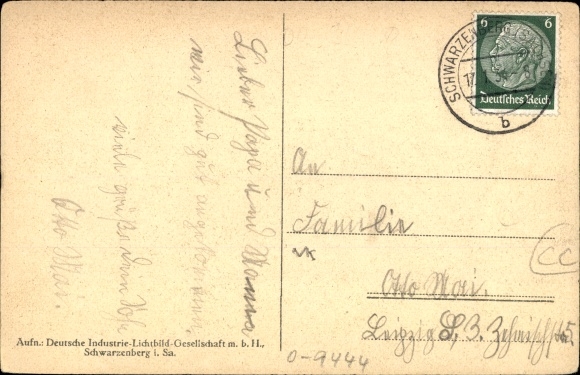 Lieber Papa und Mama
wir sind gut angekommen.
viele grüße dein
Otto Mai.
Aufn.: Deutsche Industrie-Lichtbild-Gesellschaft m. b. H.,
Schwarzenberg i. Sa.
SCHWARZENBERG
17.1.
b
6 6
Deutsches Reich
An
Familie
Otto Mai.
Leipzig
CC
0-9444